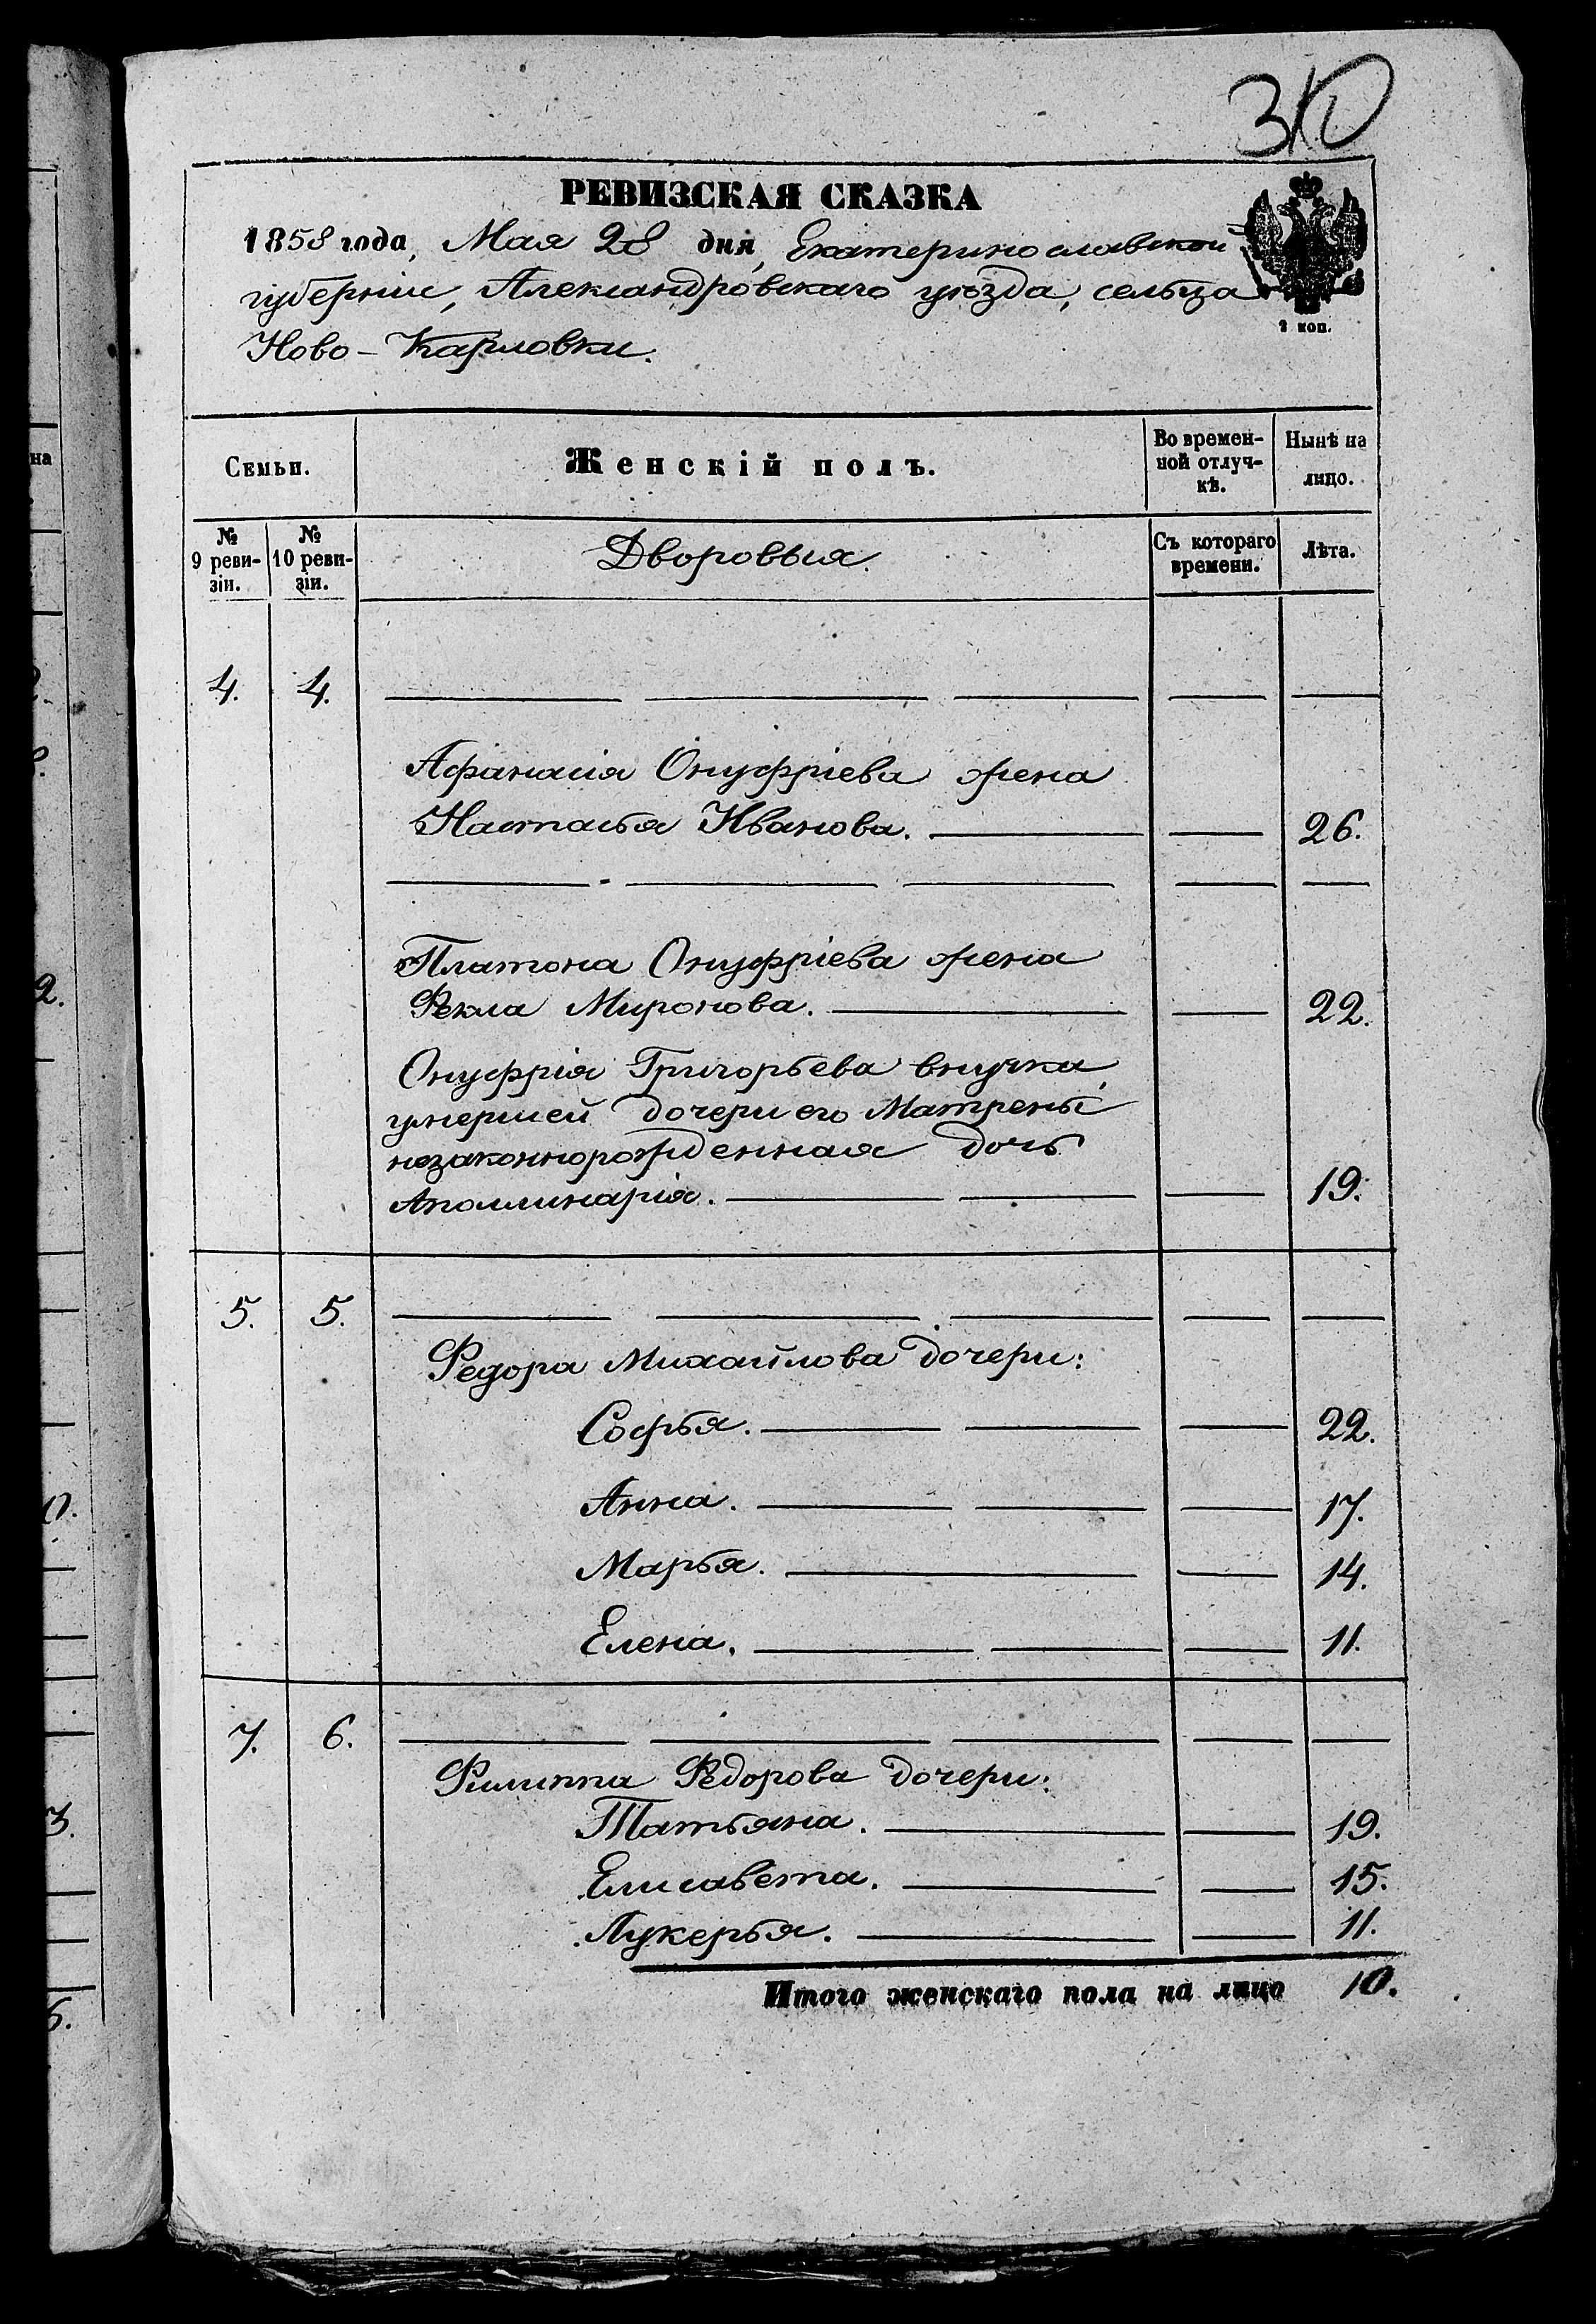 310
РЕВИЗСКАЯ СКАЗКА
1858 года, Мая 28 дня, Екатеринославской
губерніи, Александровскаго уѣзда, сельца
Ново-Карловки.
2 коп.
Семьи.
Женскій полъ.
Во времен-
ной отлуч-
кѣ.
Нынѣ на
лицо.
№
9 реви-
зіи.
№
10 реви-
зіи.
Дворовыя.
Съ котораго
времени.
Лѣта.
4. 4.
Афанасія Онуфріева жена
Настасья Иванова. 26.
Платона Онуфріева жена
Фекла Миронова. 22.
Онуфрія Григорьева внучка,
умершей дочери его Матрены
незаконнорожденная дочь
Апполинарія. 19.
5. 5.
Федора Михайлова дочери:
Софья. 22.
Анна. 17.
Марья. 14.
Елена. 11.
7. 6.
Филиппа Федорова дочери:
Татьяна. 19.
Елисавета. 15.
Лукерья. 11.
Итого женскаго пола на лицо 10.